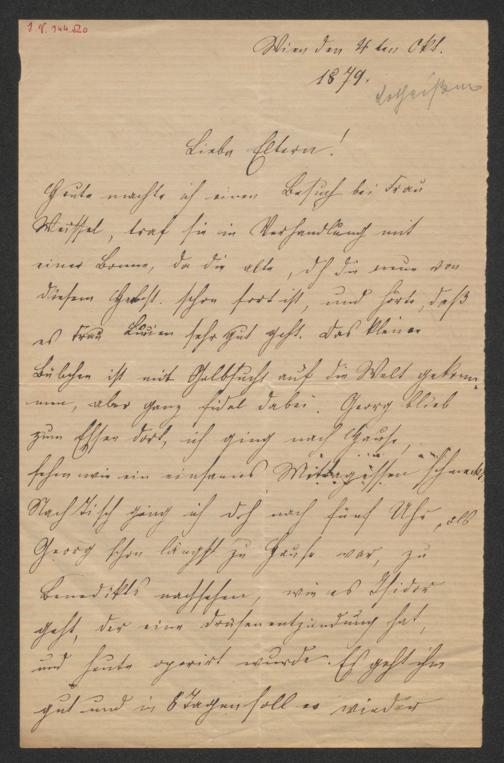 I. N. 144.520
Wien den 4ten Okt.
1879.
Liebe Eltern!
Heute machte ich einen Besuch bei Frau
Weissel, traf sie in Verhandlung mit
einer Bonne, da die alte, dh die neue von
diesem Herbst. schon fort ist, und hörte, daß
es Frau sehr gut geht. Das kleine
Bübchen ist mit Gelbsucht auf die Welt gekom-
men, aber ganz fidel dabei. Georg blieb
zum Essen dort, ich ging nach Hause,
sehen wie ein einsames Mittagessen schmeckt.
Nach Tisch ging ich doch nach fünf Uhr, als
Georg schon längst zu Hause war, zu
Benedikts nachsehen, wie es Isidor
geht, der eine Drüsenentzündung hat,
und heute operirt wurde. Es geht ihm
gut und in 8 Tagen soll er wieder